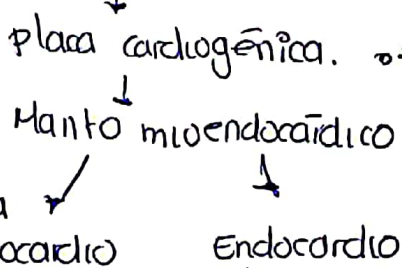 placa cardiogēnica.
Manto mioendocārdico
ocardio Endocardio